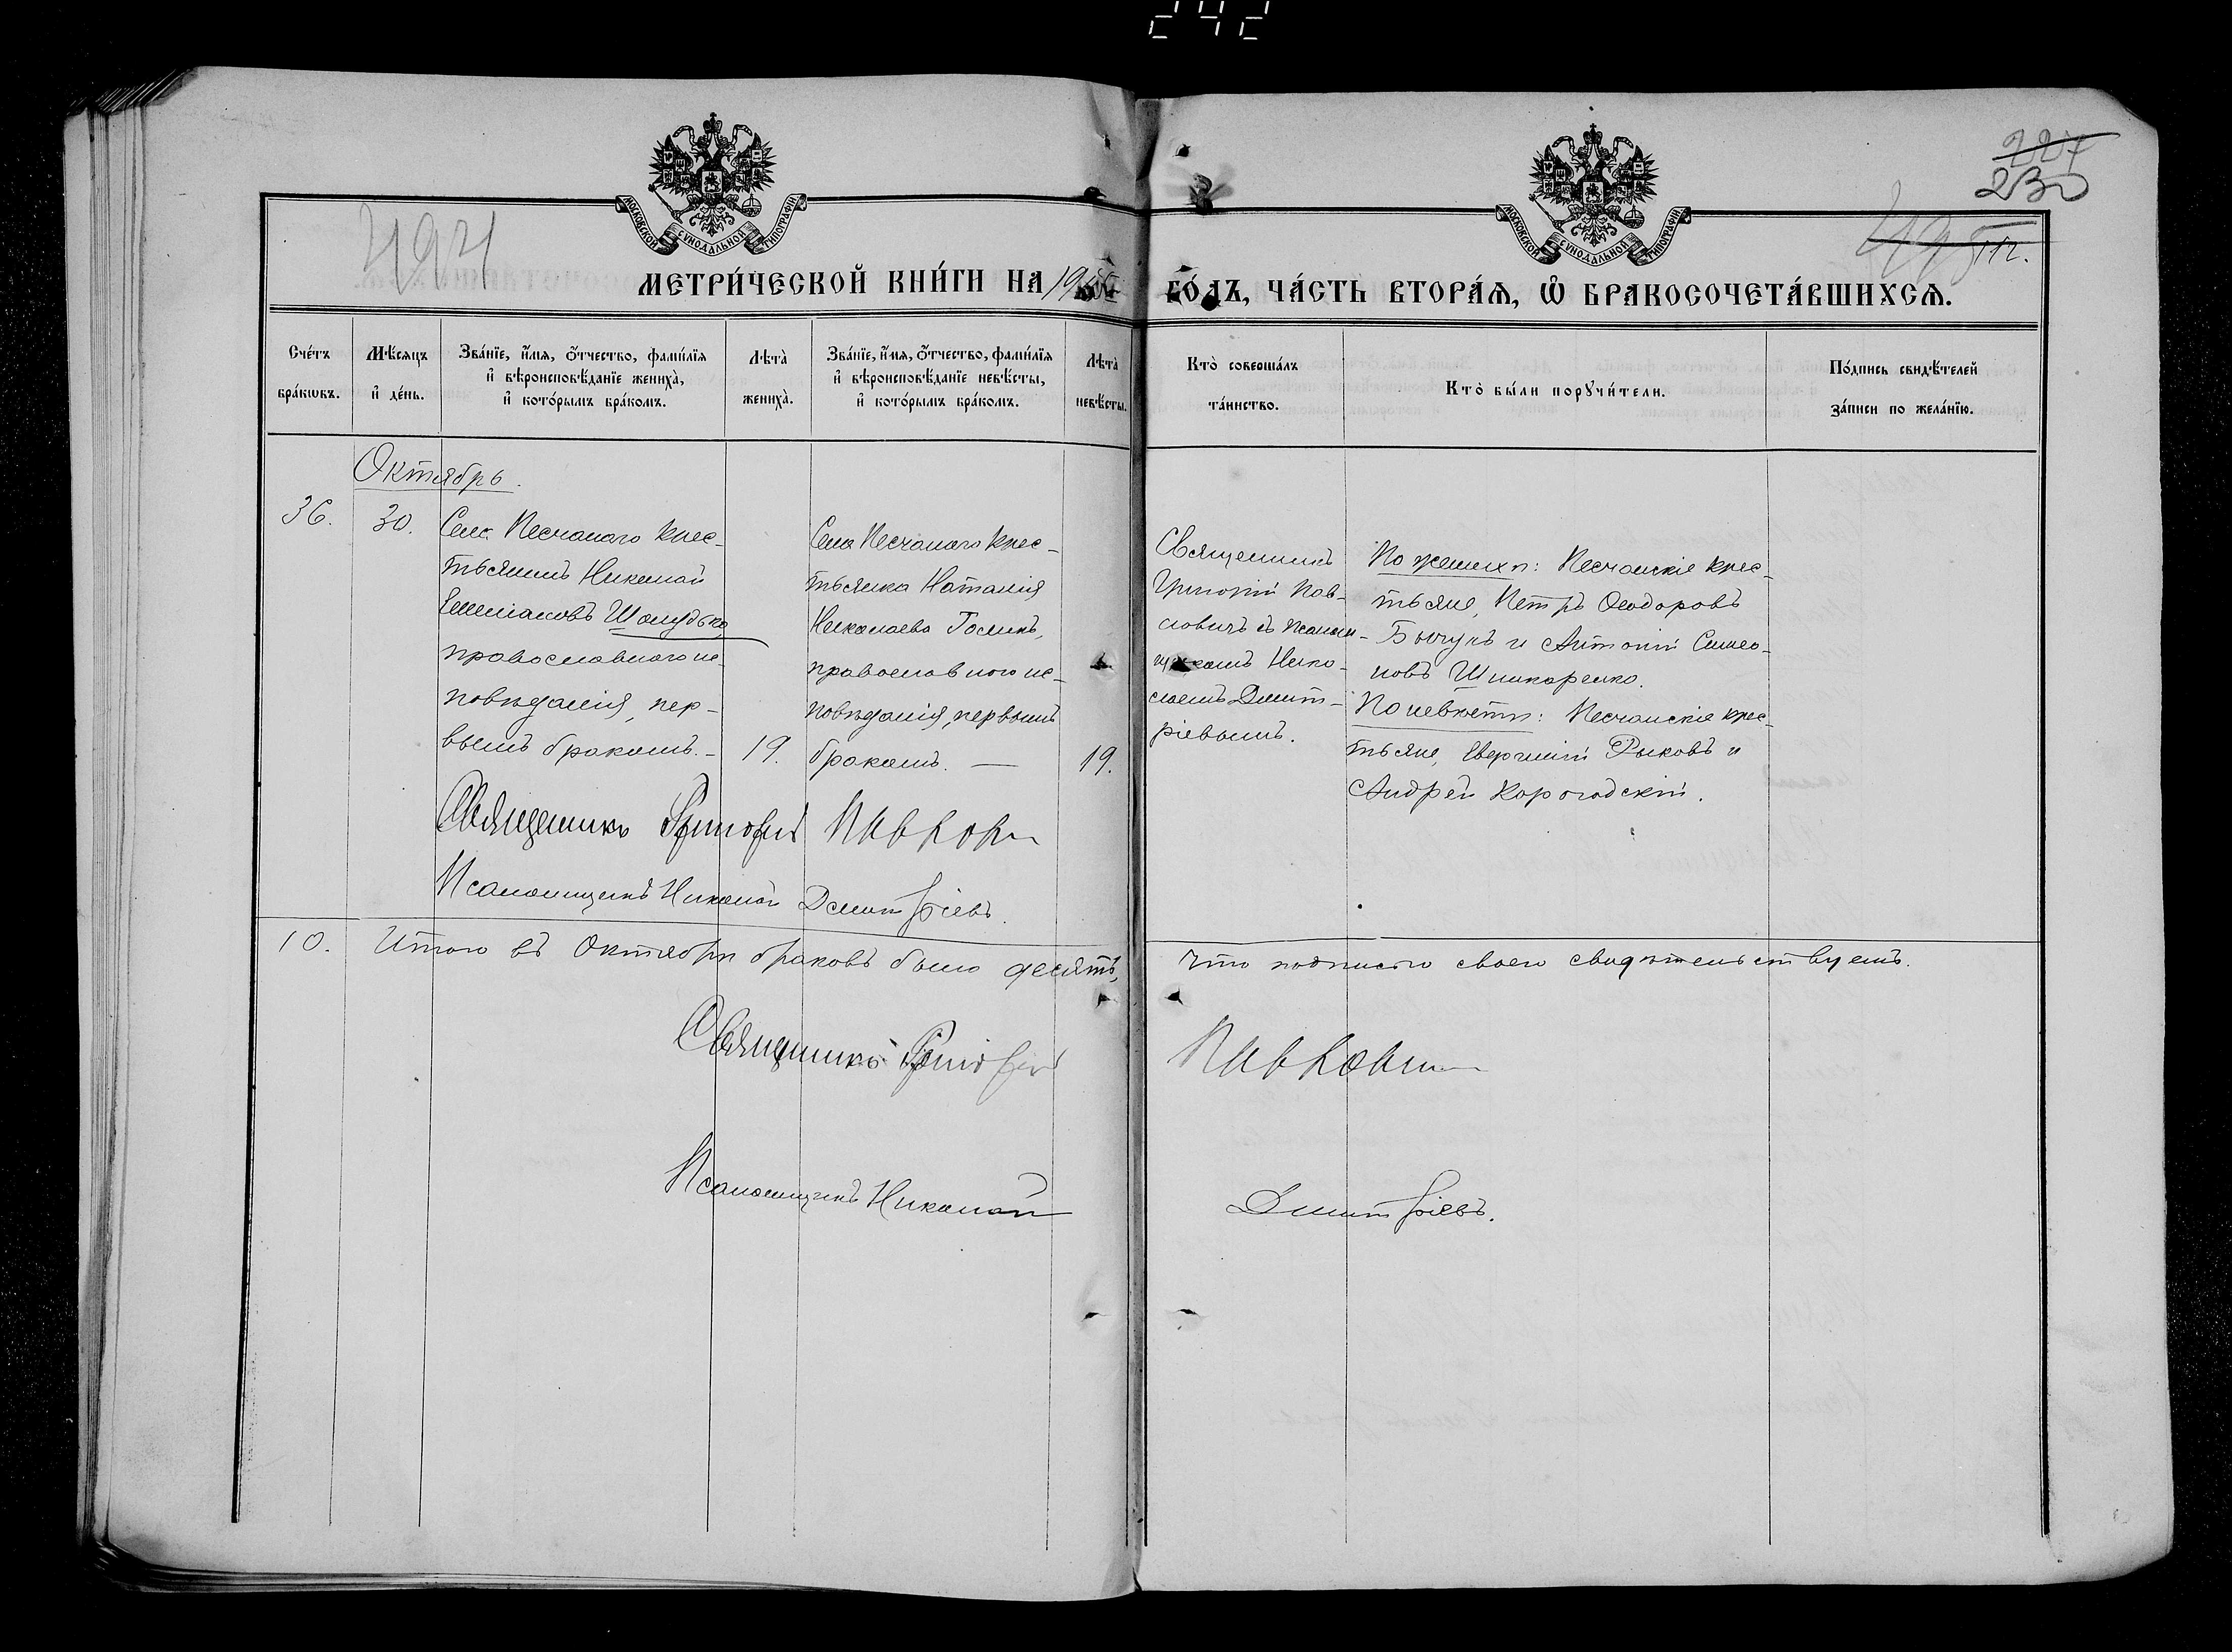 242
227
230
494
495
112.
МОСКОВСКОЙ СУНОДАЛЬНОЙ ТИПОГРАФІИ
МОСКОВСКОЙ СУНОДАЛЬНОЙ ТИПОГРАФІИ
МЕТРИ́ЧЕСКОЙ КНИ́ГИ НА 19
ГО́ДЪ, ЧА́СТЬ ВТОРА́Ѧ, Ѽ БРАКОСОЧЕТА́ВШИХСѦ.
Сче́тъ бра́кѡвъ.
Мѣ́сяцъ и҆ де́нь.
Зва́нїе, и҆́мя, ѻ҆́тчество, фами́лїя
и҆ вѣроисповѣ́данїе женихà,
и҆ кото́рымъ бра́комъ.
Лѣтà женихà.
Зва́нїе, и҆́мя, ѻ҆́тчество, фами́лїя
и҆ вѣроисповѣ́данїе невѣ́сты,
и҆ кото́рымъ бра́комъ.
Лѣтà невѣ́сты.
Ктò соверша́лъ та́инство.
Ктò бы́ли порꙋчи́тели.
По́дпись свидѣ́телей за́писи по жела́нїю.
Октябрь.
36.
30.
Села Песчанаго крес-
тьянинъ Николай
Емеліановъ Шолудько
православнаго ис-
повѣданія, пер-
вымъ бракомъ.-
19.
Села Песчанаго крес-
тьянка Наталія
Николаева Голикъ,
православного ис-
повѣданія, первымъ
бракомъ. —
19.
Священникъ
Григорій Пав-
ловичъ съ псалом-
щикомъ Нико-
лаемъ Дмит-
ріевымъ.
По женихѣ: Песчанскіе крес-
тьяне, Петръ Ѳеодоровъ
Бычукъ и Антоній Симео-
новъ Шинкаренко.
По невѣстѣ: Песчанскіе крес-
тьяне, Евргній Рыковъ и
Андрей Корогодскій.
Священникъ Григорій
Псаломщикъ Николай Дмитріевъ.
10.
Итого въ Октябрѣ браковъ было десять,
что подписью своею свидѣтельствуемъ.
Священникъ Григорій
Псаломщикъ Николай
Дмитріевъ.